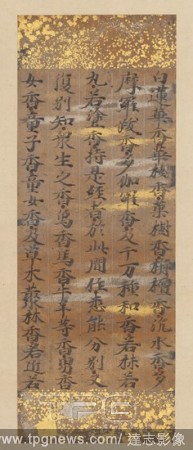 白蓮華香華樹香菓樹香栴檀香沉水香多
摩羅跋香多伽羅香及千万種和香若抹若
丸若塗香持是經者於此間住悉能分別又
復別知衆生之香象香馬香牛羊等香男香
女香童子香童女香及草木叢林香若近若
tpg
www.tpgnews.com / 達志影像